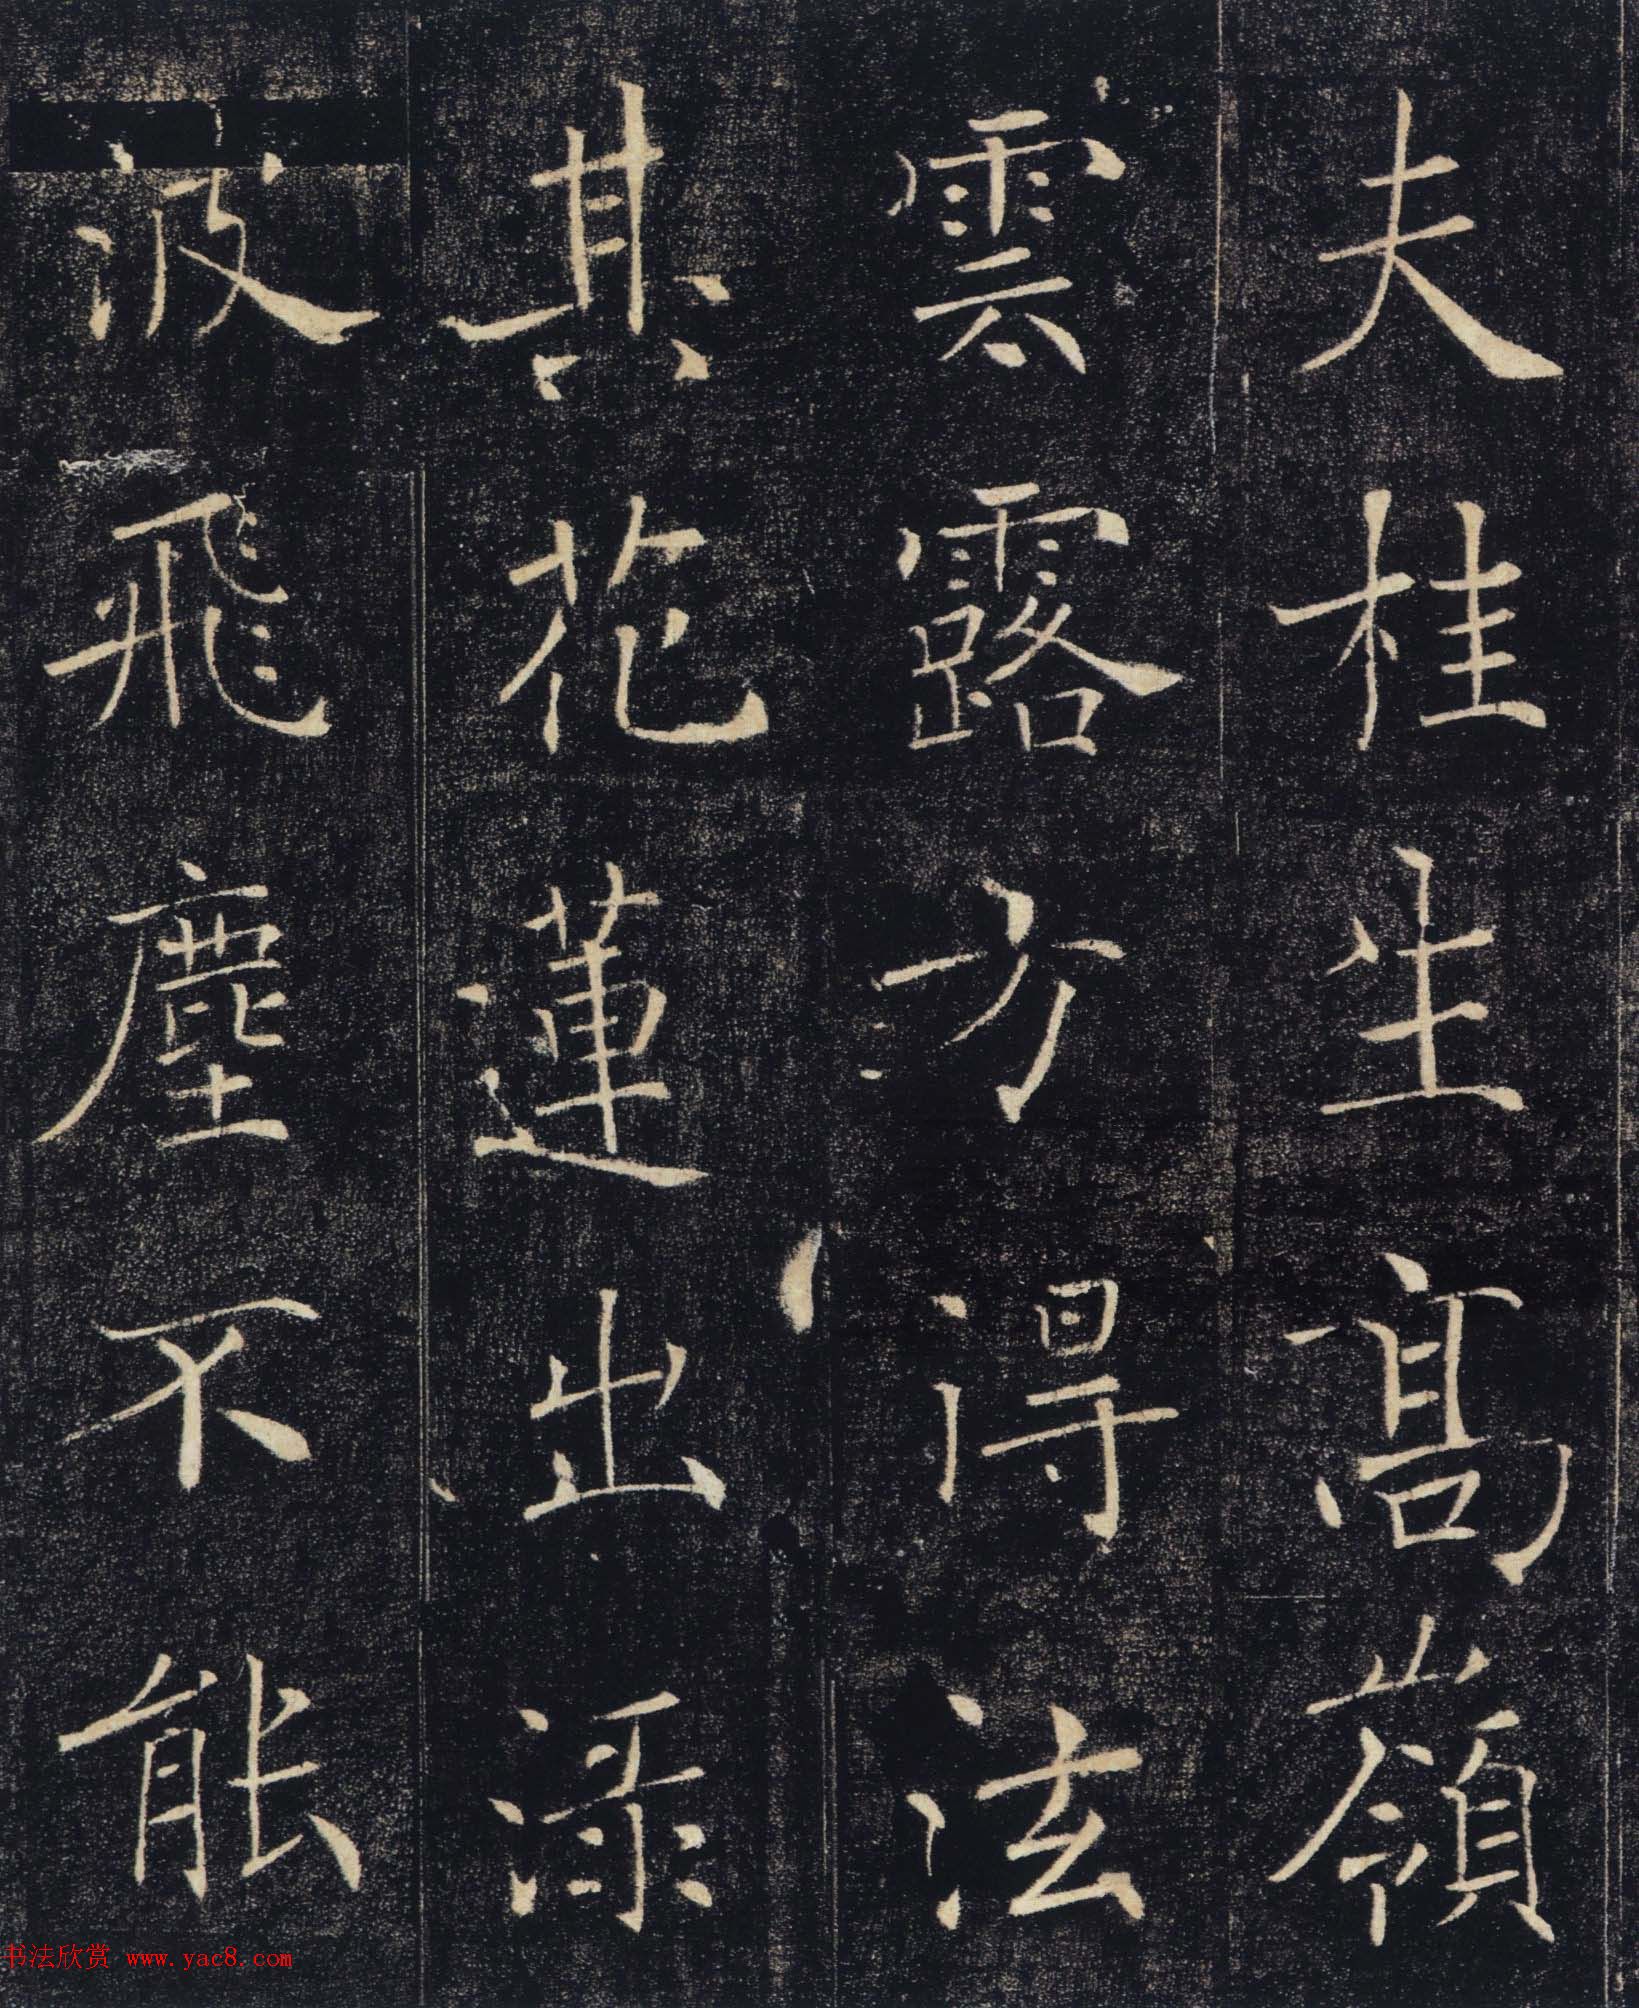 夫桂生髙嶺
雲露方得泫
其花蓮出渌
波飛塵不能
书法欣赏 www.yac8.com